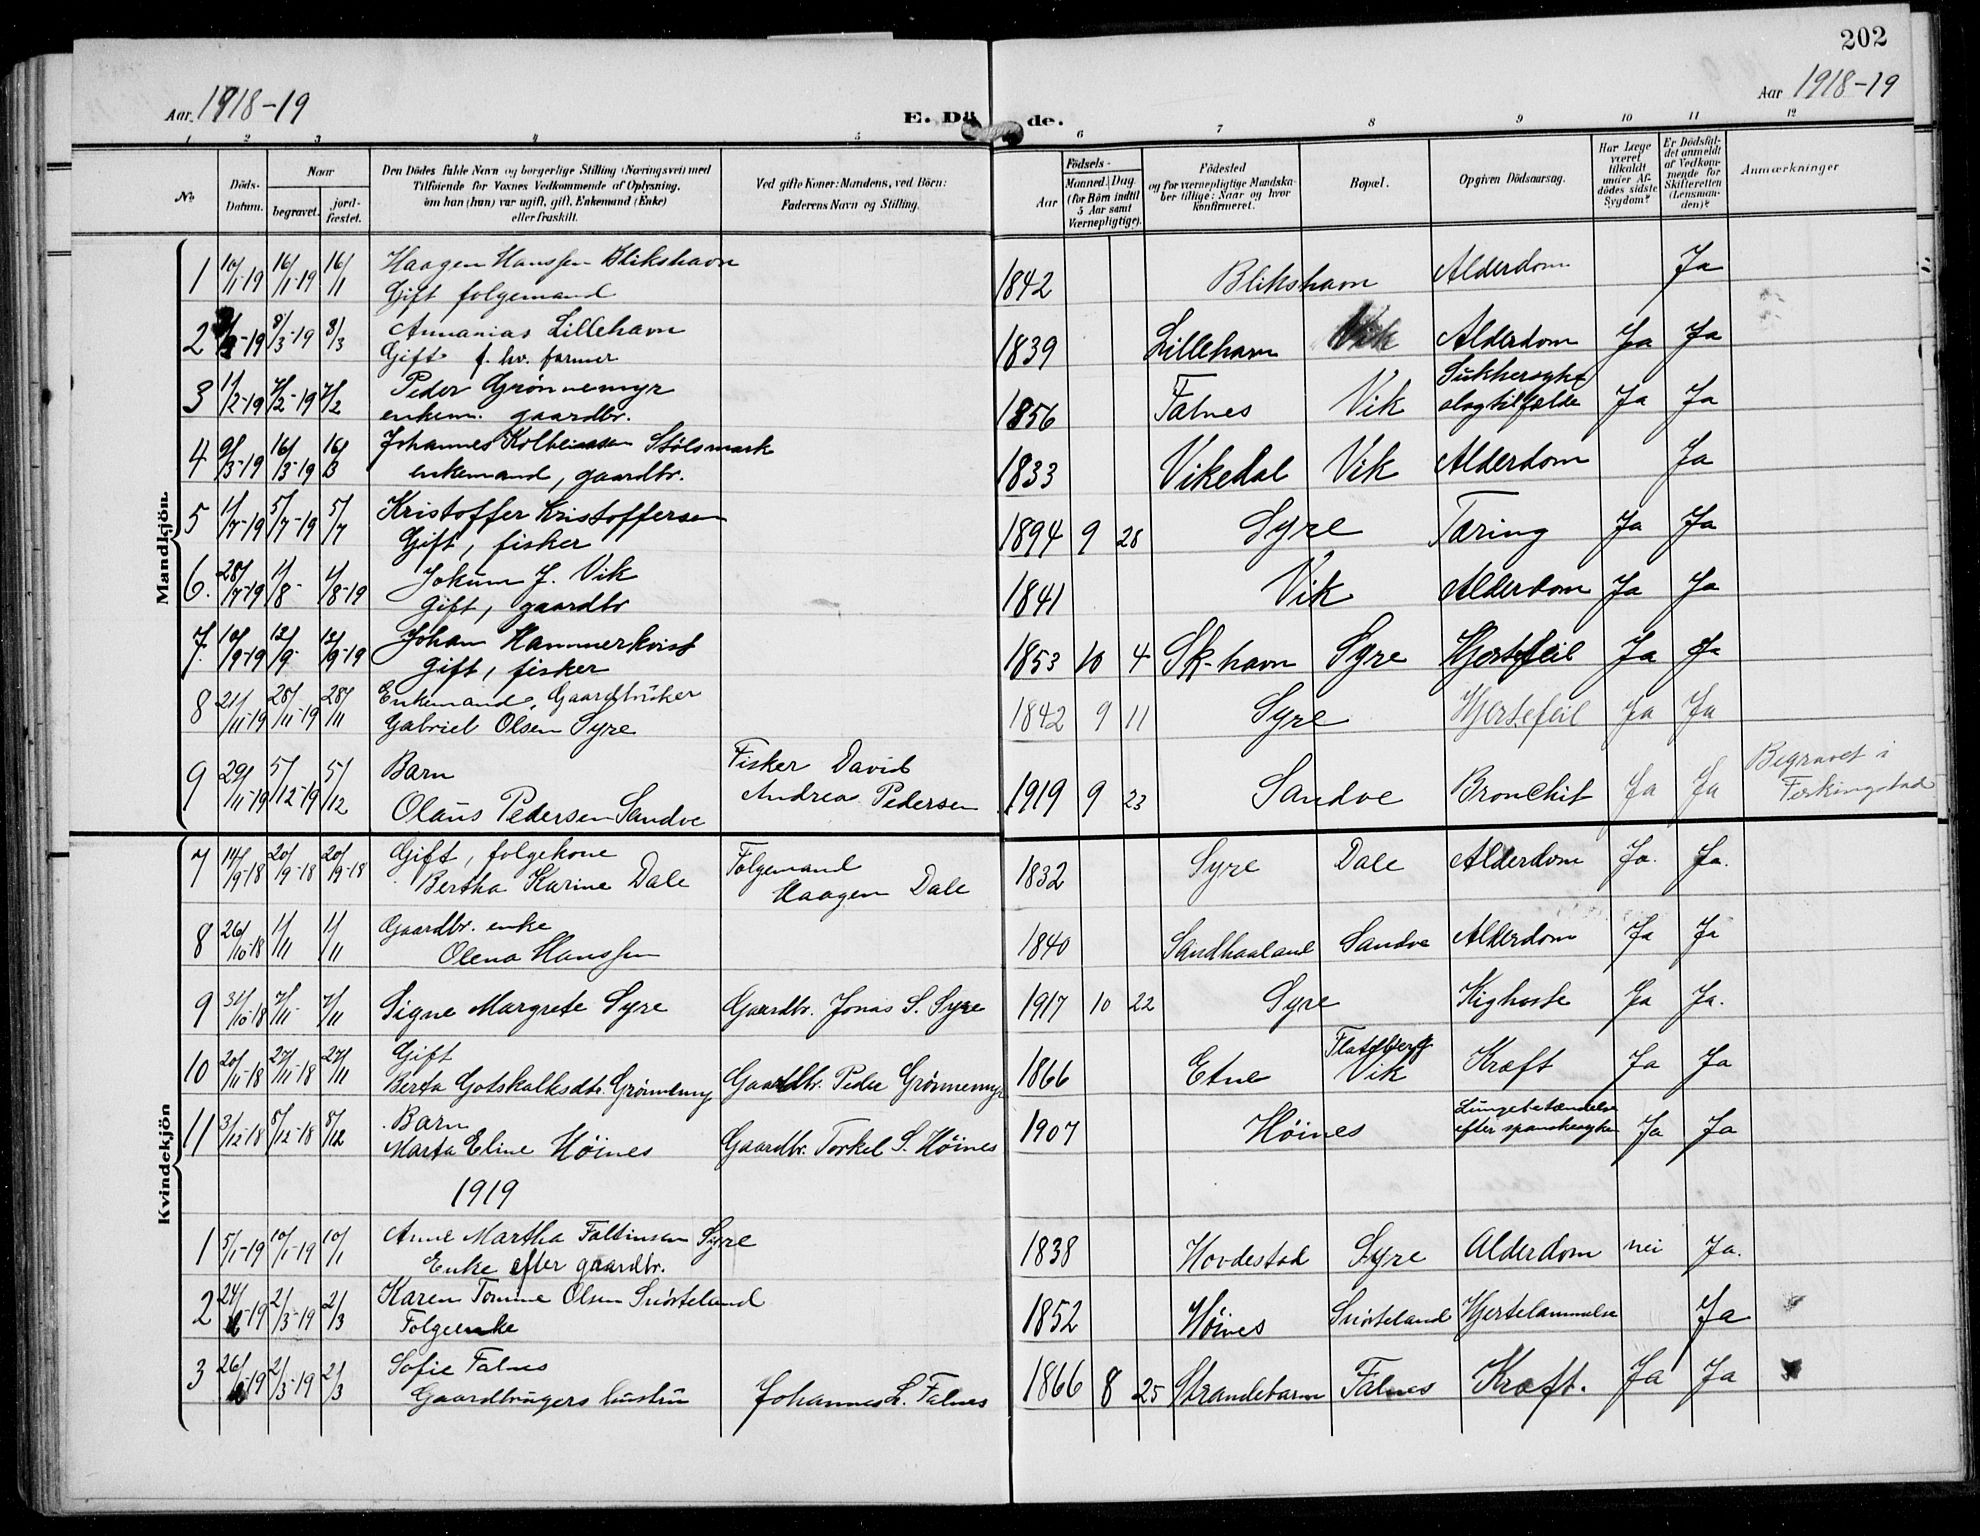 202
Aar. 1918-19
Aar 1918-19
E. Dö de.
1 2 3 4 5 6 7 8 9 10 11 12
№
Döds-Datum.
Naar
begravet.
jord-fæstet.
Den Dödes fulde Navn og borgerlige Stilling (Næringsvei) med
Tilföiende for Voxnes Vedkommende af Oplysning,
om han (hun) var ugift, gift, Enkemand (Enke)
eller fraskilt.
Ved gifte Koner: Mandens, ved Börn:
Faderens Navn og Stilling.
Aar
Födsels-
Maaned. Dag
(for Börn indtil
5 Aar samt
Værnepligtige).
Födested
og for værnepligtige Mandska-
ber tillige: Naar og hvor
konfirmeret.
Bopæl.
Opgiven Dödsaarsag.
Har Læge
været
tilkaldt
under Af-
dödes sidste
Sygdom?
Er Dödsfal-
det anmeldt
af Vedkom-
mende for
Skifteretten
(Lensman-
den)?
Anmærkninger
Mandkjön.
1 10/1-19 16/1-19 16/1 Haagen Hanssen Blikshavn 1842 Blikshavn Alderdom Ja
Gift folgemand
2 -19 8/3-19 8/3 Annanias Lillehavn 1839 Lillehavn Vik Alderdom Ja Ja
Gift f. hv. farmer
3 1/2-19 7/2-19 7/2 Peder Grønnemyr 1856 Falnes Vik Sukkersyke slagtilfælde Ja Ja
enkem. gaardbr.
4 9/3-19 16/3-19 16/3 Johannes Kolbeinssen Stölsmark 1833 Vikedal Vik Alderdom Ja
enkemand, gaardbr.
5 1/7-19 5/7-19 5/7 Kristoffer Kristoffersen 1894 9 28 Syre Tæring Ja Ja
Gift, fisker
6. 28/7-19 1/8 1/8-19 Jokum J. Vik 1841 Vik Alderdom Ja Ja
gift, gaardbr
7. 10/9-19 12/9. 12/9-19 Johan Hammerkvist 1853 10 4 Sk-havn Syre Hjertefeil Ja Ja
gift, fisker
8 21/11-19 28/11-19 28/11 Enkemand, Gaardbruker 1842 9 11 Syre Hjertefeil Ja Ja
Gabriel Olsen Syre
9 29/11-19 5/12-19 5/12 Barn Fisker David 1919 9 23 Sandve Bronchit Ja Ja Begravet i
Olaus Pedersen Sandve Andreas Pedersen Ferkingstad
Kvindekjön
7 14/9-18 20/9-18 20/9-18 Gift, folgekone Folgemand 1832 Syre Dale Alderdom Ja. Ja.
Bertha Karine Dale Haagen Dale
8 26/10-18 1/11 1/11 Gaardbr. enke 1840 Sandhaaland Sandve Alderdom Ja Ja
Olena Hanssen
9 31/10-18 7/11- 7/11 Signe Margrete Syre Gaardbr. Jonas S. Syre 1917 10 22 Syre Kighoste Ja Ja.
10 20/11-18 27/11-18 27/11 Gift 1866 Etne Flatebergg Vik Kræft Ja Ja
Berta Gotskalksdtr. Grønnemy Gaardbr. Peder Grönnemyr
11 3/12-18 8/12-18 8/12 Barn 1907 Höines Lungebetændelse Ja Ja
Marta Eline Höines Gaardbr. Torkel S. Höines efter spanskesyken
1919
1 5/1-19 10/1-19 10/1 Anne Martha Faltinsen Syre 1838 Hovdestad Syre Alderdom nei Ja.
Enke efter gaardbr.
2 24/ -19 2/3-19 2/3 Karen Tomine Olsen Snörteland 1852 Höines Snörteland Hjertelammelse Ja
Folgeenke
3 26/ -19 2/3-19 2/3 Sofie Falnes 1866 8 25 Strandebarm Falnes Kræft. Ja Ja
Gaardbrugers hustru Johannes L. Falnes